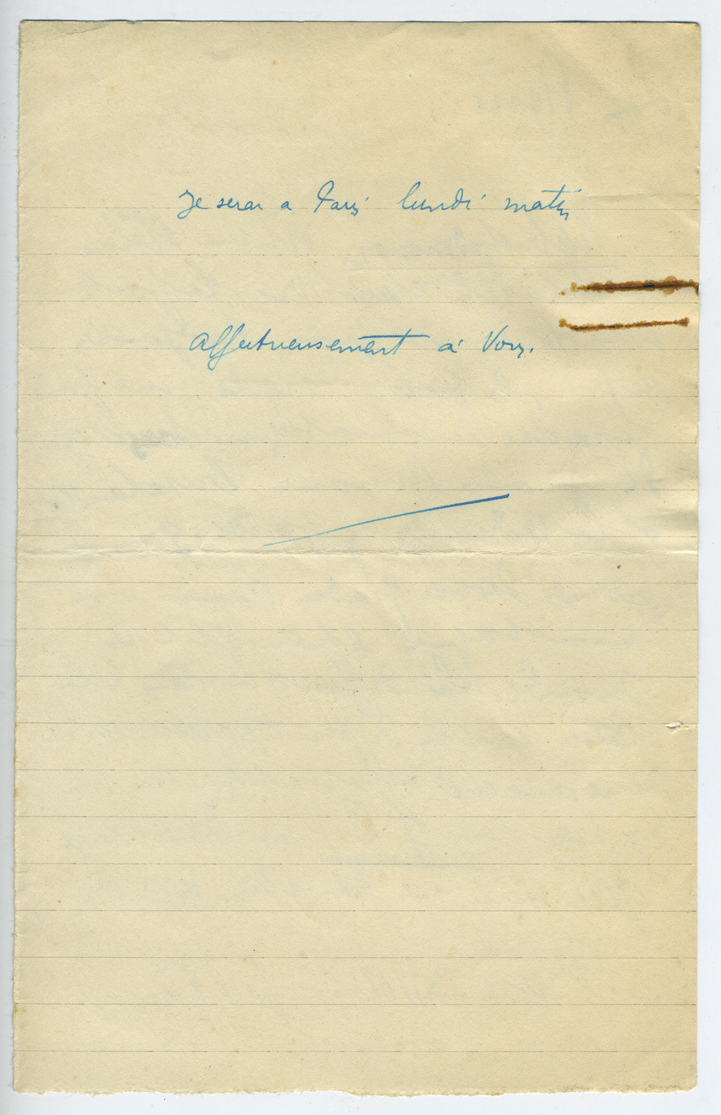 Je serai a Paris lundi matin
Affectueusement à Vous.